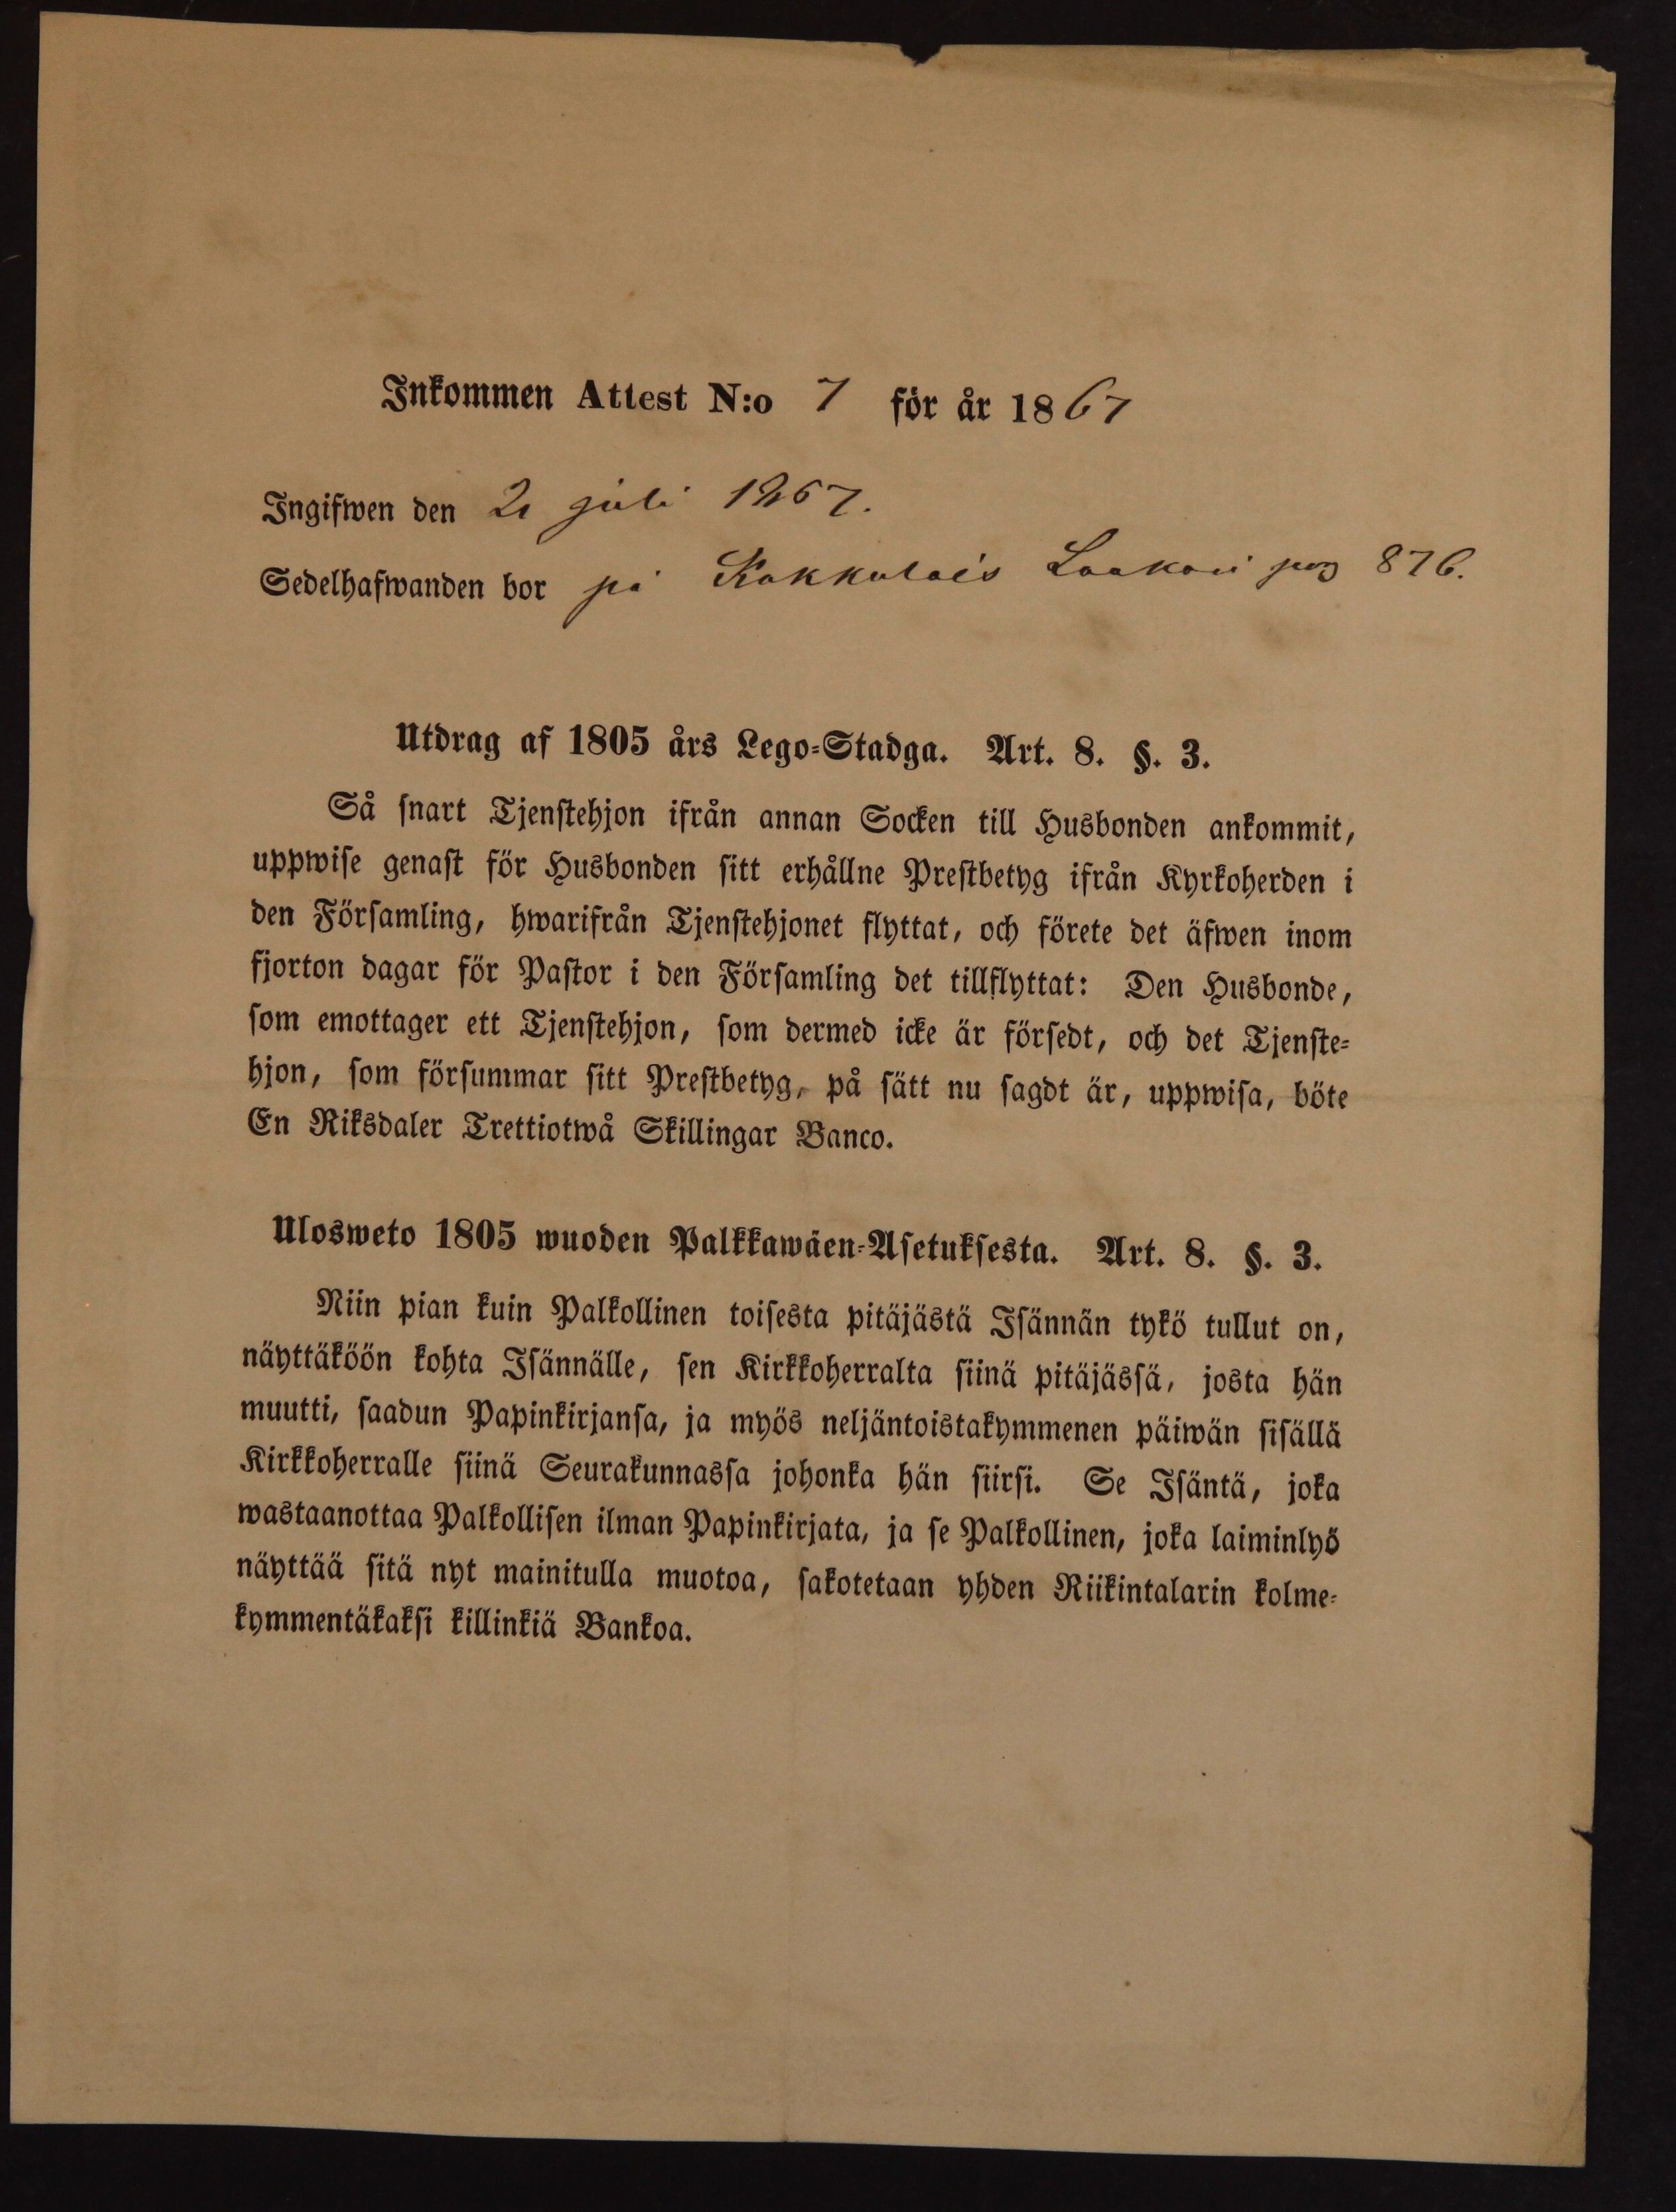 Inkommen Attest N:o 7 för år 1867
Ingifwen den 2 juli 1867.
Sedelhafwanden bor på Kakkulais Laakari pag 876.
Utdrag af 1805 års Lego-Stadga. Art. 8. §. 3.
Så snart Tjenstehjon ifrån annan Socken till Husbonden ankommit,
uppwise genast för Husbonden sitt erhållne Prestbetyg ifrån Kyrkoherden i
den Församling, hwarifrån Tjenstehjonet flyttat, och förete det äfwen inom
fjorton dagar för Pastor i den Församling det tillflyttat: Den Husbonde,
som emottager ett Tjenstehjon, som dermed icke är försedt, och det Tjenste-
hjon, som försummar sitt Prestbetyg, på sätt nu sagdt är, uppwisa, böte
En Riksdaler Trettiotwå Skillingar Banco.
Ulosweto 1805 wuoden Palkkawäen-Asetuksesta. Art. 8. §. 3.
Niin pian kuin Palkollinen toisesta pitäjästä Isännän tykö tullut on,
näyttäköön kohta Isännälle, sen Kirkkoherralta siinä pitäjässä, josta hän
muutti, saadun Papinkirjansa, ja myös neljäntoistakymmenen päiwän sisällä
Kirkkoherralle siinä Seurakunnassa johonka hän siirsi. Se Isäntä, joka
wastaanottaa Palkollisen ilman Papinkirjata, ja se Palkollinen, joka laiminlyö
näyttää sitä nyt mainitulla muotoa, sakotetaan yhden Riikintalarin kolme-
kymmentäkaksi killinkiä Bankoa.